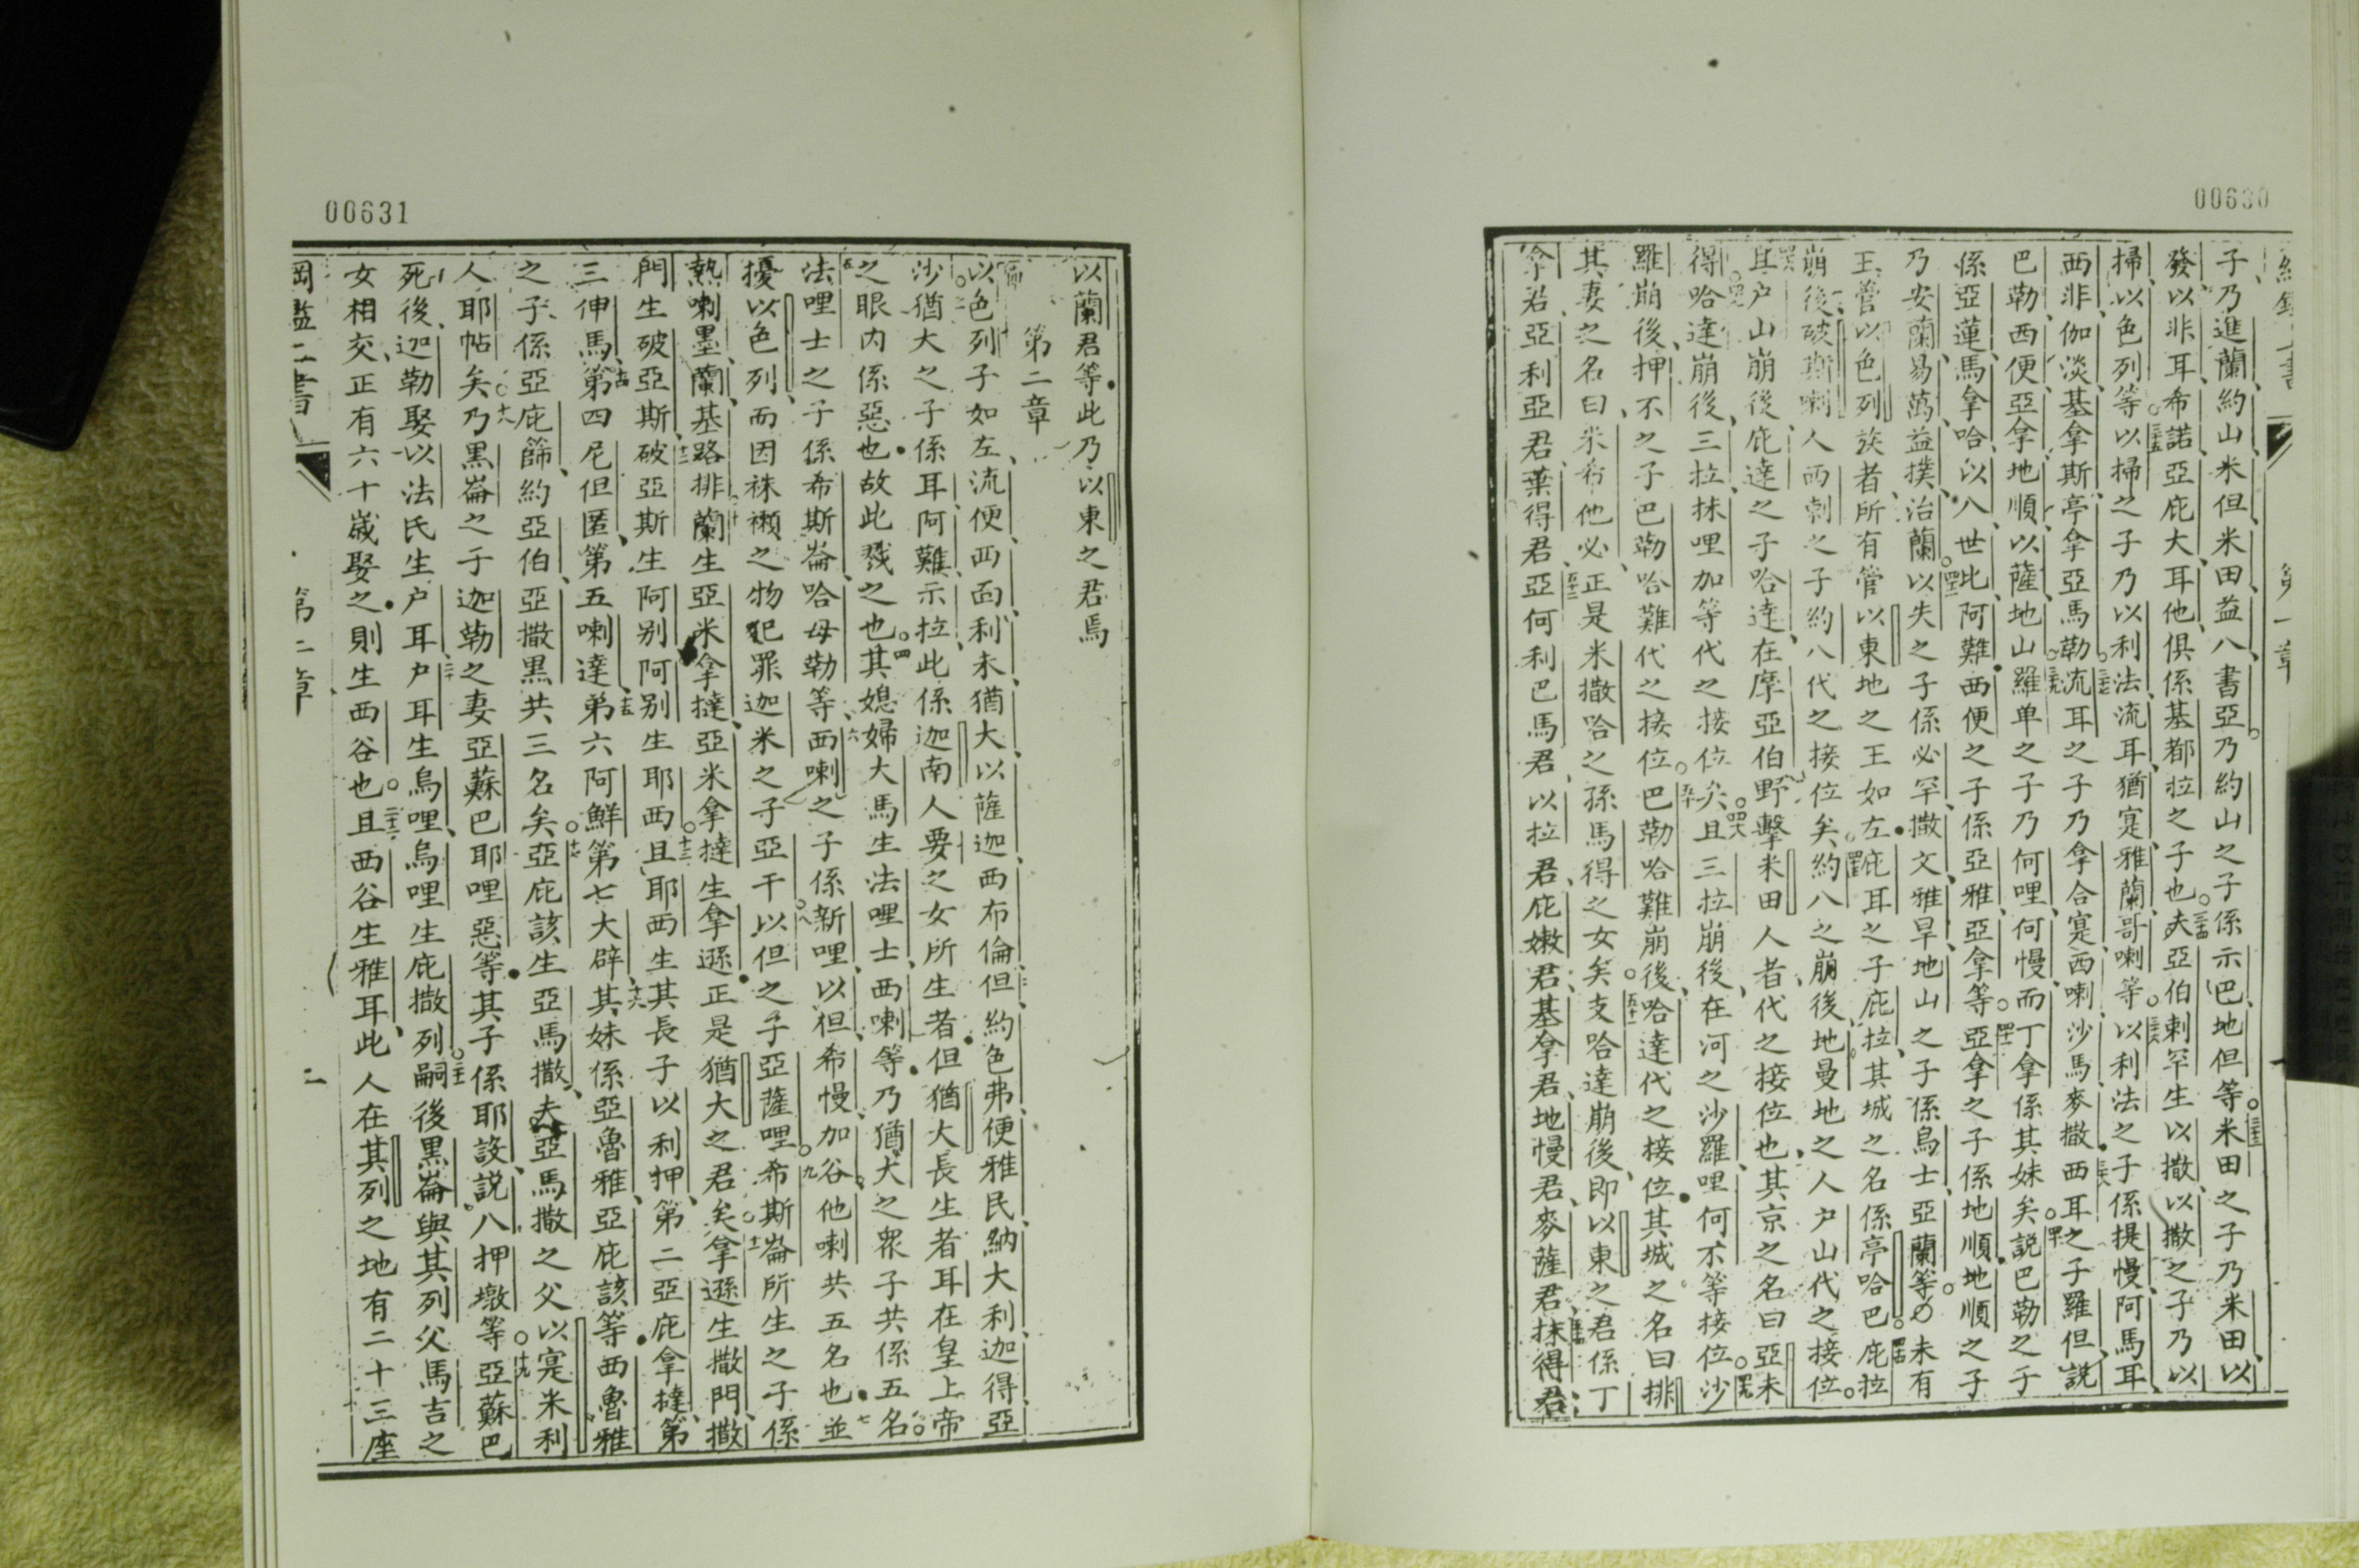 00630
子乃進蘭約山米但米田益八書亞乃約山之子係示巴地但等米田之子乃米田以
發以非耳希諾亞庇大耳他俱係基都拉之子也夫亞伯剌罕生以撒以撒之子乃以
掃以色列等以掃之子乃以利法流耳猶寔雅蘭哥喇等以利法之子係提慢阿馬耳
西非伽淡基拿斯亭拿亞馬勒流耳之子乃拿合寔西喇沙馬麥撒西耳之子羅但説
巴勒西便亞拿地順以薩地山羅单之子乃何哩何慢而丁拿係其妹矣説巴勒之子
係亞蓮馬拿哈以八世比阿難西便之子係亞雅亞拿等亞拿之子係地順地順之子
乃安蘭易萬益撲治蘭以失之子係必罕撒文雅早地山之子係烏士亞蘭等未有
王管以色列族者所有管以東地之王如左庇耳之子庇拉其城之名係亭哈巴庇拉
崩後破斯喇人西剌之子約八代之接位矣約八之崩後地曼地之人户山代之接位
且户山崩後庇達之子哈達在摩亞伯野擊米田人者代之接位也其京之名曰亞未
得哈達崩後三拉抹哩加等代之接位矣且三拉崩後在河之沙羅哩何不等接位沙
羅崩後押不之子巴勒哈難代之接位巴勒哈難崩後哈達代之接位其城之名曰排
其妻之名曰米希他必正是米撒哈之孫馬得之女矣支哈達崩後即以東之君係丁
拿君亞利亞君葉得君亞何利巴馬君以拉君庇嫩君基拿君地慢君麥薩君抹得君
00631
以蘭君等此乃以東之君焉
第二章
以色列子如左流便西面利未猶大以薩迦西布倫但約色弗便雅民納大利迦得亞
沙猶大之子係耳阿難示拉此係迦南人要之女所生者但猶大長生者耳在皇上帝
之眼内係惡也故此戮之也其媳婦大馬生法哩士西喇等乃猶大之眾子共係五名
法哩士之子係希斯崙哈母勒等西喇之子係新哩以但希慢加谷他喇共五名也並
擾以色列而因袾襰之物犯罪迦米之子亞干以但之子亞薩哩希斯崙所生之子係
熱喇墨蘭基路排蘭生亞米拿撻亞米拿撻生拿遜正是猶大之君矣拿遜生撒門撒
門生破亞斯破亞斯生阿别阿别生耶西且耶西生其長子以利押第二亞庇拿撻第
三伸馬第四尼但匿第五喇達弟六阿鮮第七大辟其妹係亞魯雅亞庇該等西魯雅
之子係亞庇篩約亞伯亞撒黑共三名矣亞庇該生亞馬撒夫亞馬撒之父以寔米利
人耶帖矣乃黑崙之子迦勒之妻亞蘇巴耶哩惡等其子係耶設説八押墩等亞蘇巴
死後迦勒娶以法氏生户耳户耳生烏哩烏哩生庇撒列嗣後黑崙與其列父馬吉之
女相交正有六十歲娶之則生西谷也且西谷生雅耳此人在其列之地有二十三座
第二章